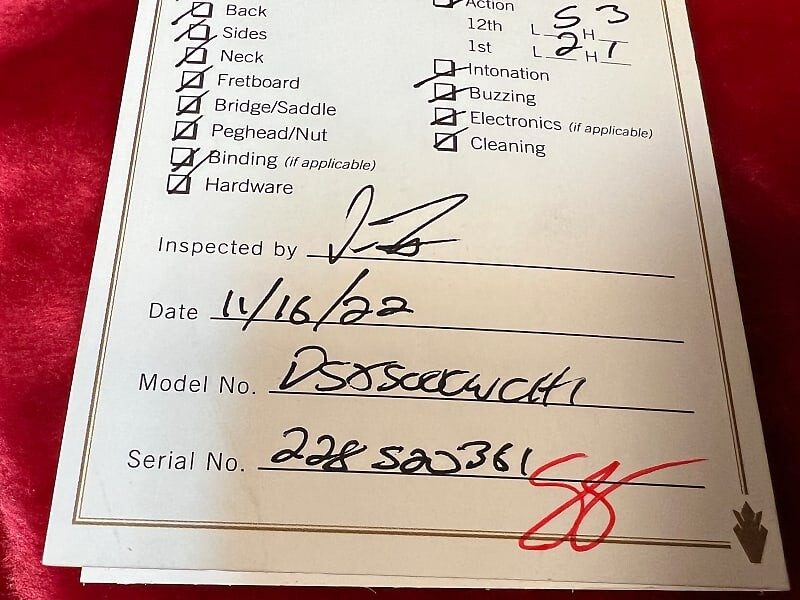 Back
Sides
Neck
Fretboard
Bridge/Saddle
Peghead/Nut
Binding (if applicable)
Hardware
Action
12th L 5 H 3
1st L 2 H 1
Intonation
Buzzing
Electronics (if applicable)
Cleaning
Inspected by
Date 11/16/22
Model No.
Serial No. 228520361